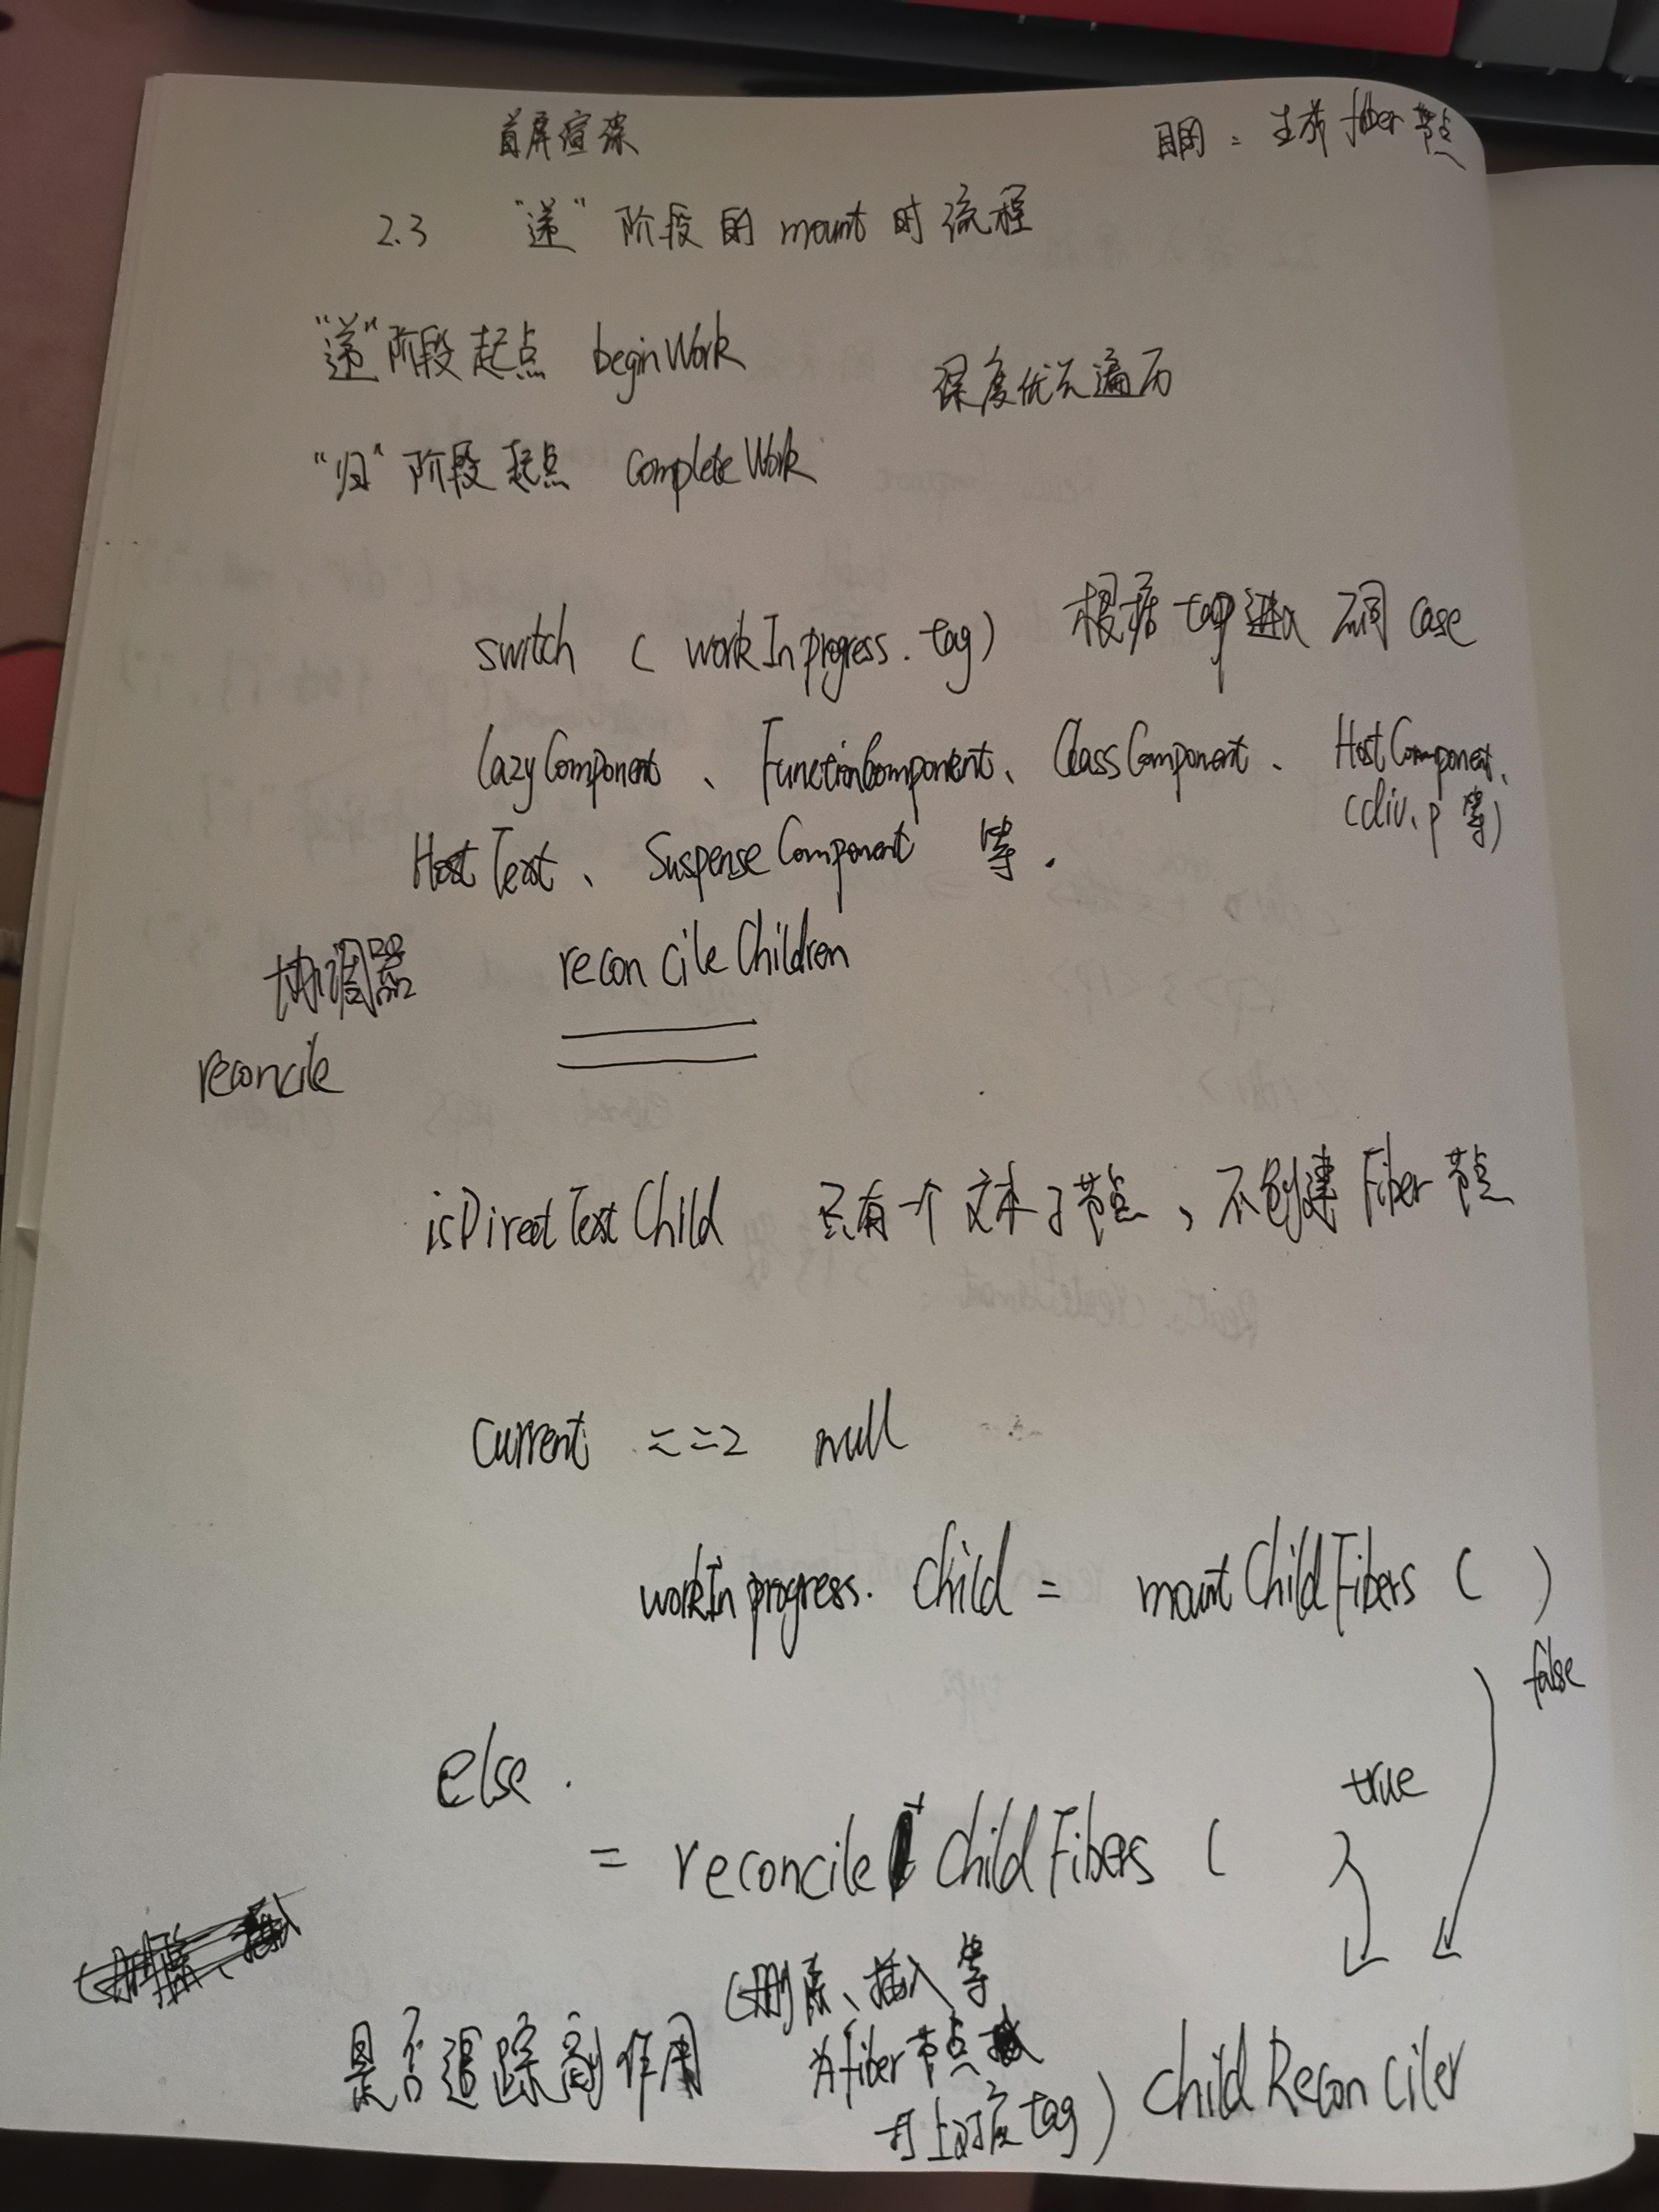 首屏渲染
目的：生成 fiber 节点
2.3 “递” 阶段的 mount 时流程
“递” 阶段起点 beginWork
深度优先遍历
“归” 阶段起点 completeWork
switch ( workInprogress.tag) 根据 tag 进入 不同 case
LazyComponent 、 FunctionComponent、 ClassComponent 、 HostComponent、
(div、p 等)
HostText 、 SuspenseComponent 等 .
协调器 reconcileChildren
reconcile
isDirectTextChild 只有一个文本子节点 , 不创建 Fiber 节点
current === null
workInprogress. child = mountChildFibers ( )
false
else .
true
= reconcile childFibers ( )
(删除、插入等
是否追踪副作用 为fiber节点
打上对应tag) childReconciler